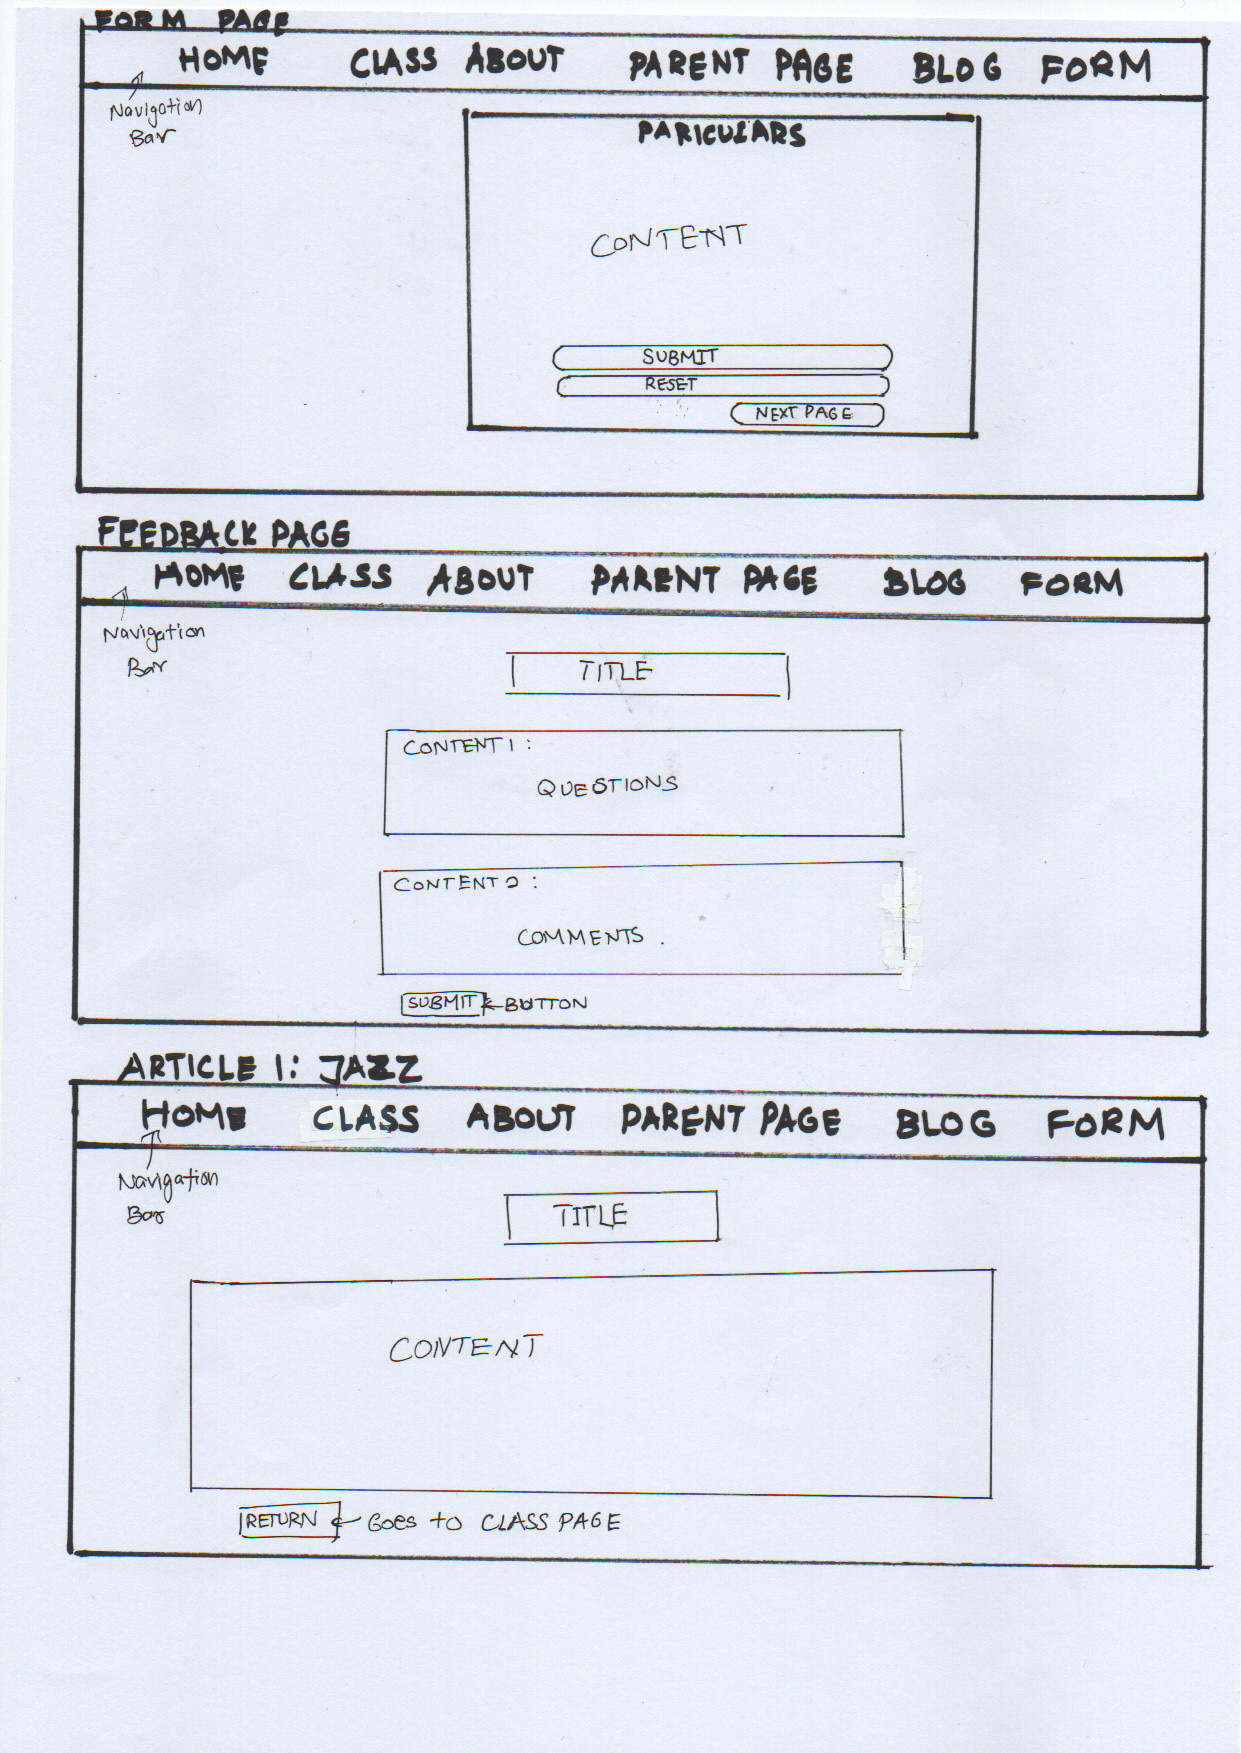 FORM PAGE
HOME CLASS ABOUT PARENT PAGE BLOG FORM
Navigation
Bar
PARICULARS
CONTENT
SUBMIT
RESET
NEXT PAGE
FEEDBACK PAGE
HOME CLASS ABOUT PARENT PAGE BLOG FORM
Navigation
Bar
TITLE
CONTENT 1 :
QUESTIONS
CONTENT 2 :
COMMENTS .
SUBMIT BUTTON
ARTICLE 1: JAZZ
HOME CLASS ABOUT PARENT PAGE BLOG FORM
Navigation
Bar
TITLE
CONTENT
RETURN GOES TO CLASS PAGE